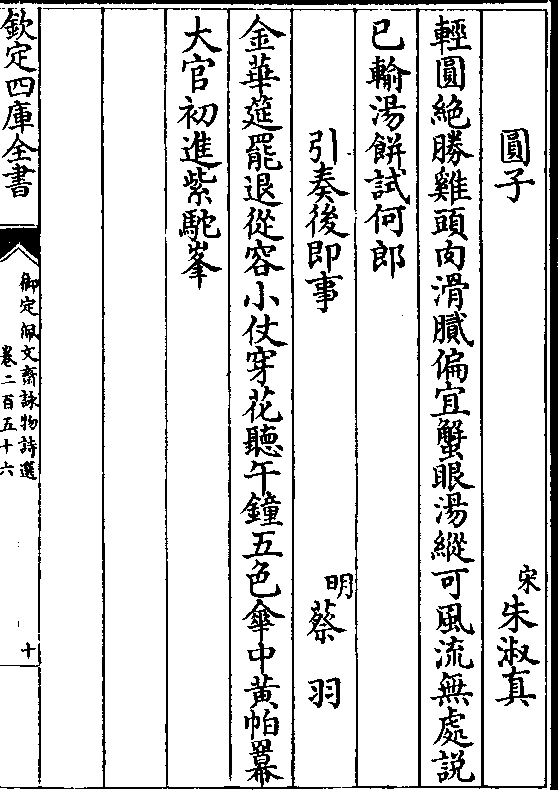 圓子　宋朱淑真
輕圓絶勝雞頭肉滑膩偏宜蟹眼湯縱可風流無處説
已輸湯餅試何郎
引奏後即事　明蔡羽
金華筵罷退從容小仗穿花聽午鐘五色傘中黄帕羃
大官初進紫駝峯
欽定四庫全書
御定佩文齋詠物詩選
卷二百五十六
十